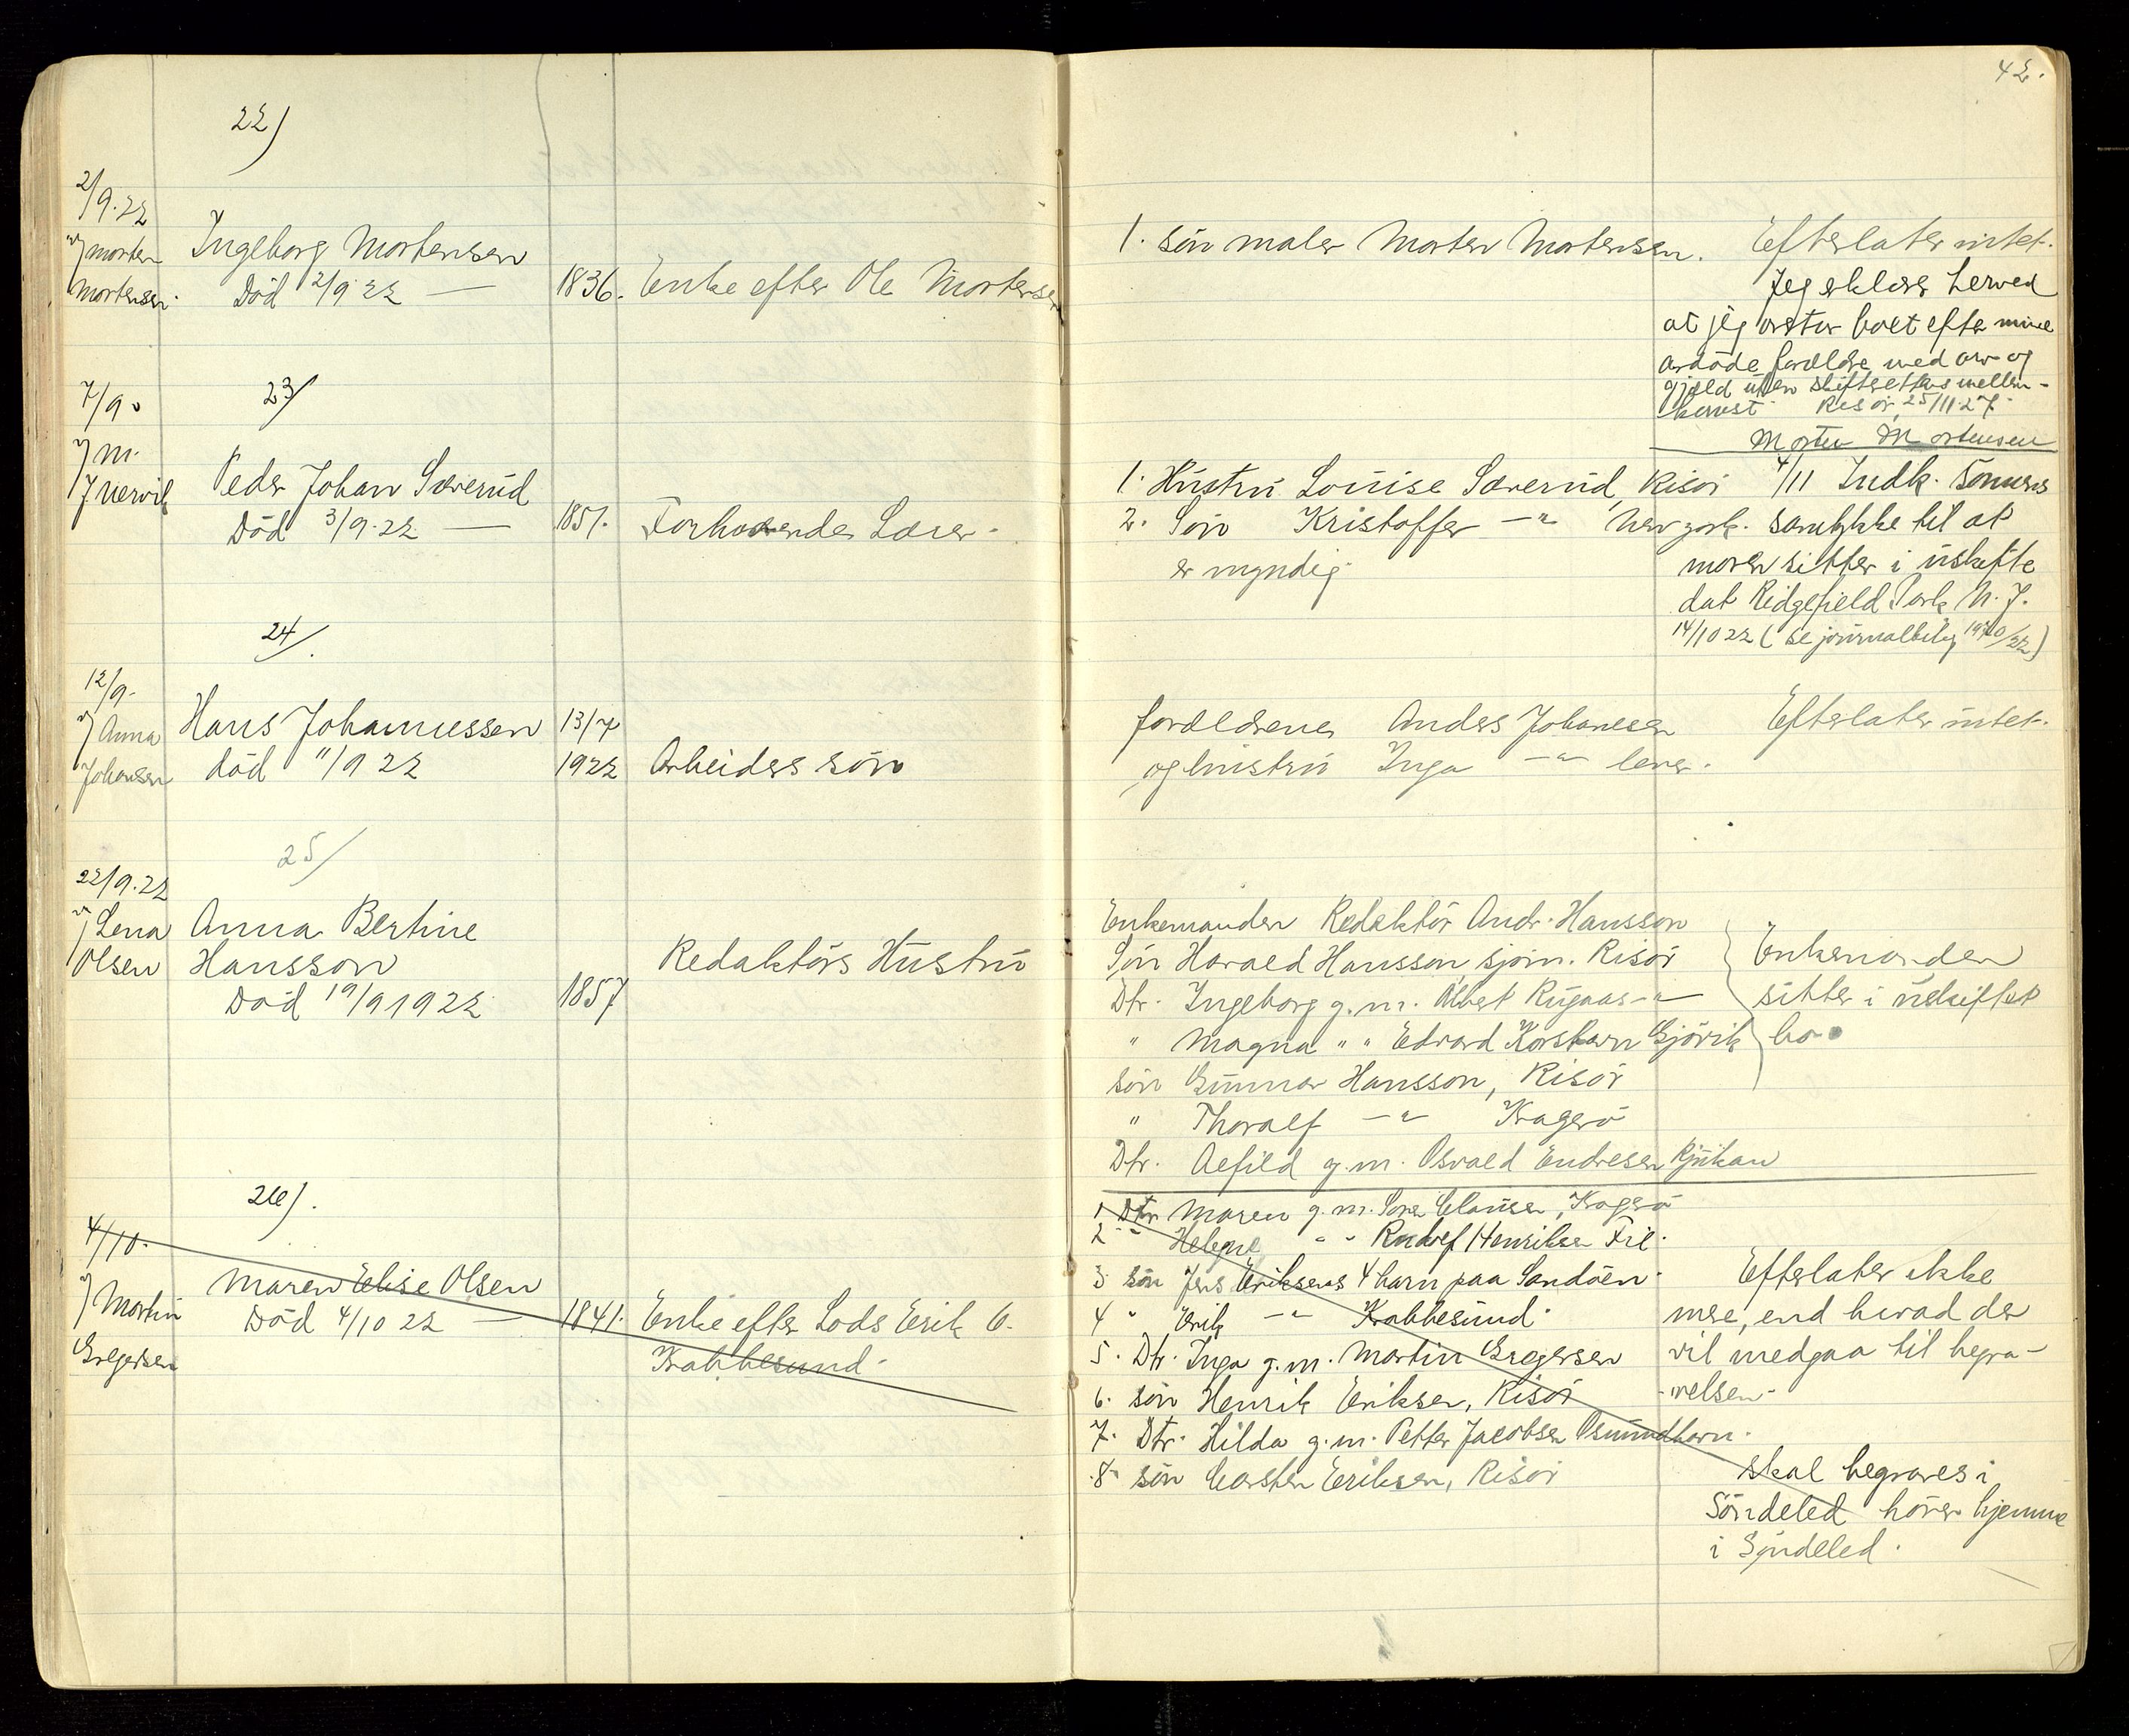 42.
22)
2/9.22
v/ Morten
Mortensen.
Ingeborg Mortensen
Död 2/9 22 —
1836.
Enke efter Ole Mortensen
1. sön maler Morten Mortensen.
Efterlater intet.
Jeg erklærer herved
at jeg overtar boet efter mine
avdöde forældre med arv og
gjæld uten skifterettens mellem-
komst. Risör, 25/11 27.
Morten Mortensen
7/9.
23/
v/ M.
Juervik
Peder Johan Særerud
Död 3/9.22 —
1851.
Forhenværende Lærer.
1. Hustru Louise Særerud, Risör
2. Sön Kristoffer —"— New York.
er myndig.
4/11 Indk. Sönnens
samtykke til at
moren sitter i uskifte
dat Ridgefield Park N. J.
14/10 22 (se journalbilag 1920/22)
24/.
12/9.
v/ Anna
Johansen
Hans Johannessen
död 11/9 22
13/7
1922
Arbeiders sön
forældrene Anders Johansen
og hustru Inga —"— lever.
Efterlater intet.
25/
22/9.22
v/ Lena
Olsen
Anna Bertine
Hansson
Död 19/9 1922
1857
Redaktörs Hustru
Enkemanden Redaktör Andr. Hansson
Sön Harald Hansson, sjöm. Risör
Dtr. Ingeborg g.m. Albert Rugaas —"—
" Magna " " Edvard Korsbarn Gjövik
sön Gunnar Hansson, Risör
" Thoralf —"— Kragerö
Dtr. Alfild g.m. Osvald Endresen Rjukan
Enkemanden
sitter i uskiftet
bo.
26).
4/10.
v/ Martin
Gregersen
Maren Elise Olsen
Död 4/10 22 —
1841.
Enke efter Lods Erik O.
Krabbesund.
1 Dtr Maren g.m. Sören Clausen, Kragerö
2 " Helene " " Rudolf Henriksen Fie.
3 sön Jens Eriksens 4 barn paa Sandöen.
4 " Erik —"— Krabbesund.
5. Dtr. Inga g.m. Martin Gregersen
6. sön Henrik Eriksen, Risör
7. Dtr. Hilda g.m. Petter Jacobsen Osmundbarn.
8. sön Carsten Eriksen, Risör
Efterlater ikke
mere, end hvad der
vil medgaa til begra-
velsen.
skal begraves i
Söndeled hörer hjemme
i Söndeled.